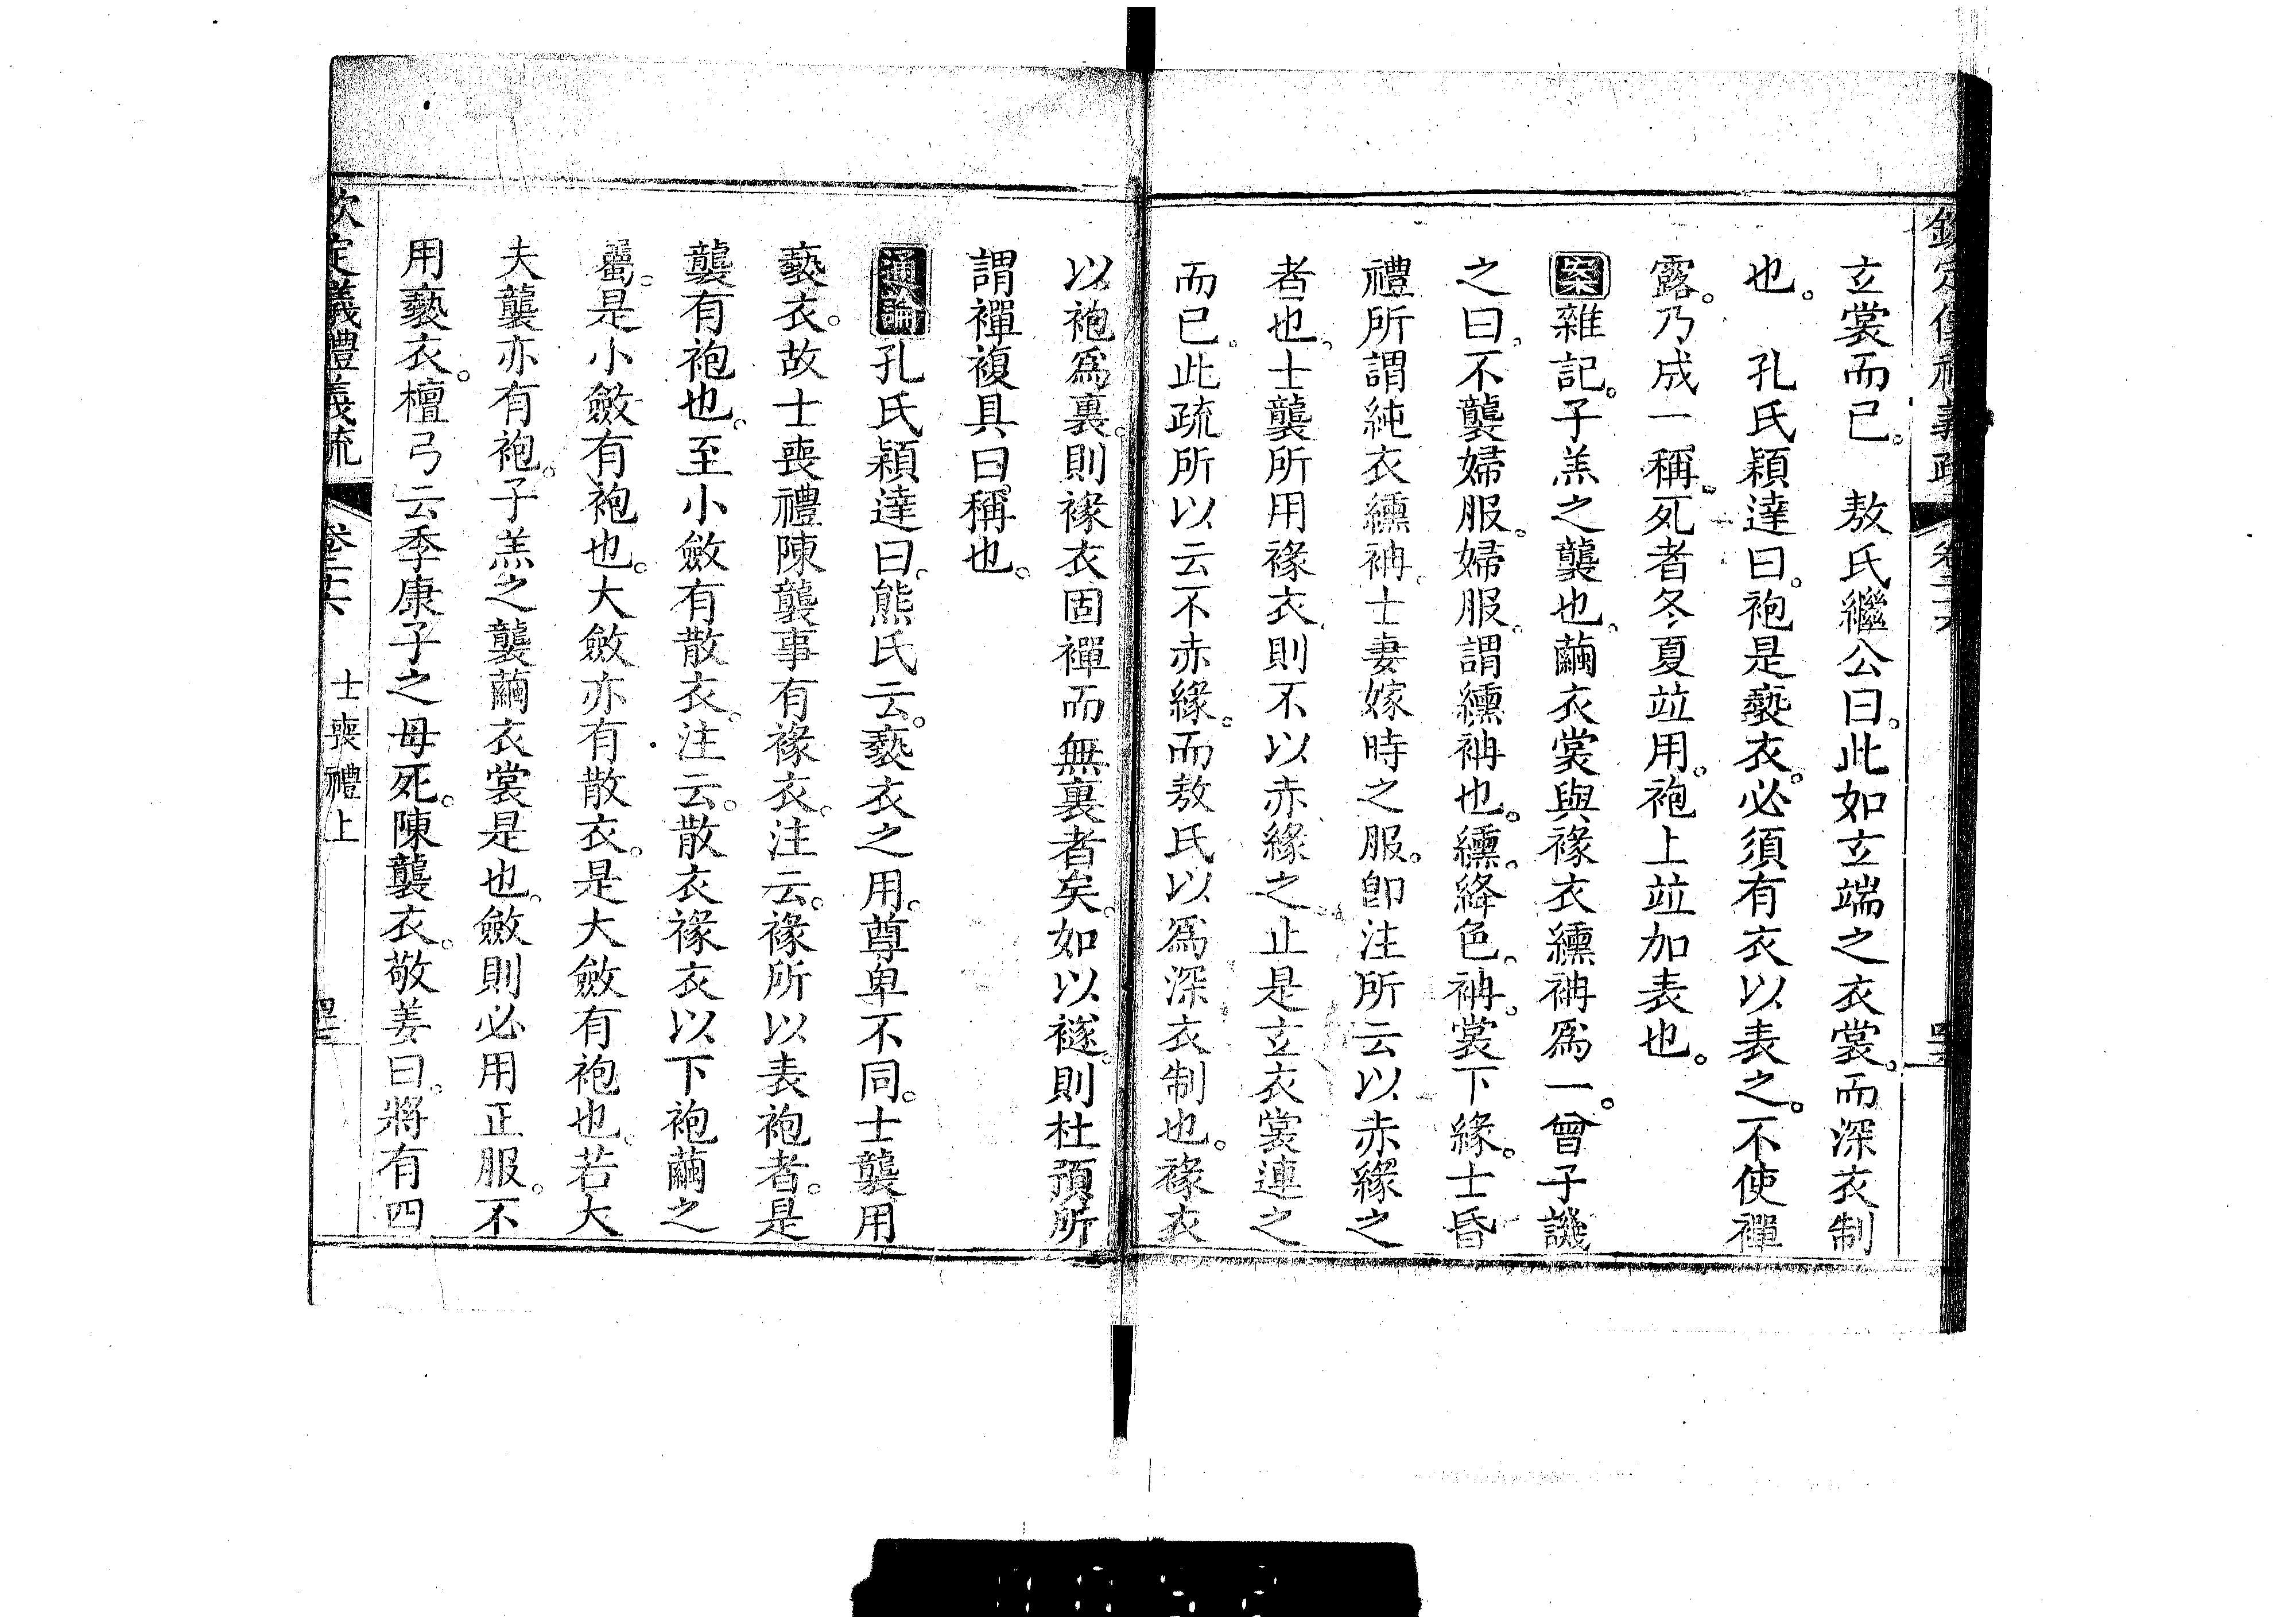 玄裳而已。　敖氏繼公曰。此如玄端之衣裳。而深衣制
也。　孔氏穎達曰。袍是褻衣。必須有衣以表之。不使襌
露。乃成一稱。死者冬夏竝用。袍上竝加表也。
案雜記。子羔之襲也。繭衣裳與褖衣纁袡爲一。曾子譏
之曰。不襲婦服。婦服。謂纁袡也。纁。絳色。袡。裳下緣。士昏
禮所謂純衣纁袡。士妻嫁時之服。卽注所云以赤緣之
者也。士襲所用褖衣。則不以赤緣之。止是玄衣裳連之
而已。此疏所以云不赤緣。而敖氏以爲深衣制也。褖衣
以袍爲裏。則褖衣固襌而無裏者矣。如以襚。則杜預所
謂襌複具曰。稱也。
通論孔氏穎達曰。熊氏云。褻衣之用。尊卑不同。士襲用
褻衣。故士喪禮陳襲事有褖衣。注云。褖所以表袍者。是
襲有袍也。至小斂有散衣。注云。散衣褖衣以下袍繭之
屬。是小斂有袍也。大斂亦有散衣。是大斂有袍也。若大
夫襲亦有袍。子羔之襲繭衣裳是也。斂則必用正服。不
用褻衣。檀弓云季康子之母死。陳襲衣。敬姜曰。將有四
欽定義禮義疏　卷二十六　士喪禮上